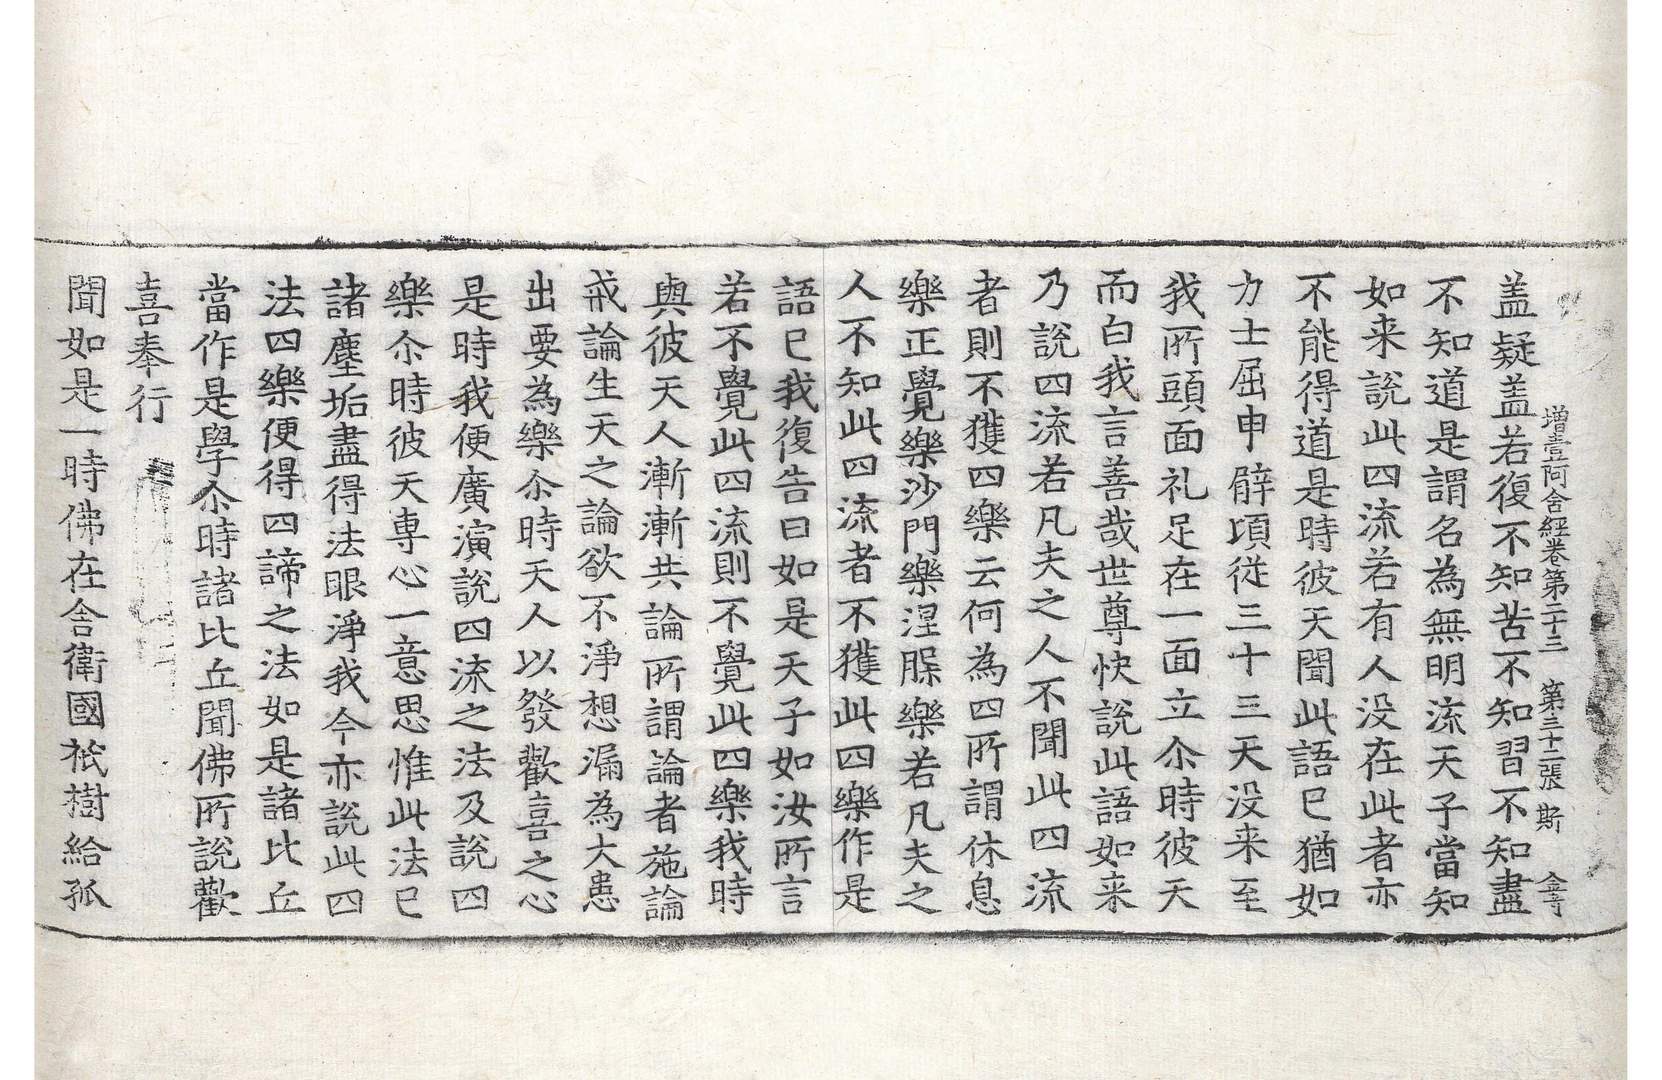 增壹阿含經卷第二十三 第三十二張 斯 金等
盖疑盖若復不知苦不知習不知盡
不知道是謂名為無明流天子當知
如来說此四流若有人没在此者亦
不能得道是時彼天聞此語已猶如
力士屈申臂頃從三十三天没来至
我所頭面礼足在一面立尒時彼天
而白我言善哉世尊快說此語如来
乃說四流若凡夫之人不聞此四流
者則不獲四樂云何為四所謂休息
樂正覺樂沙門樂涅槃樂若凡夫之
人不知此四流者不獲此四樂作是
語已我復告曰如是天子如汝所言
若不覺此四流則不覺此四樂我時
與彼天人漸漸共論所謂論者施論
戒論生天之論欲不淨想漏為大患
出要為樂尒時天人以發歡喜之心
是時我便廣演說四流之法及說四
樂尒時彼天専心一意思惟此法已
諸塵垢盡得法眼淨我今亦說此四
法四樂便得四諦之法如是諸比丘
當作是學尒時諸比丘聞佛所說歡
喜奉行
聞如是一時佛在舍衛國祇樹給孤